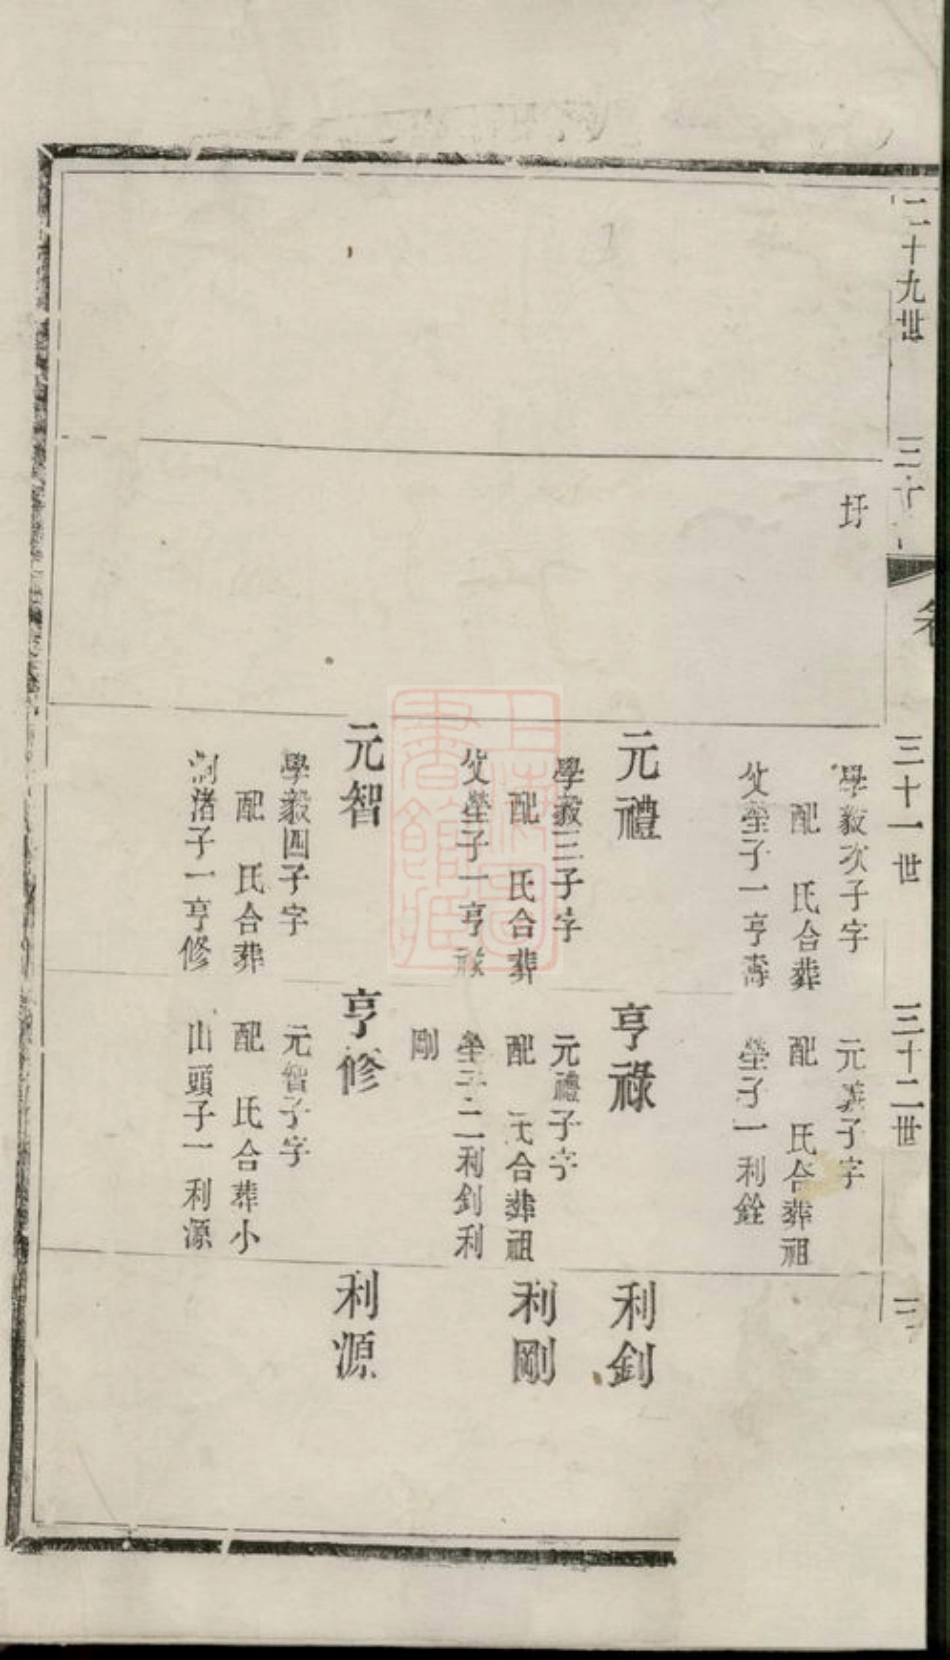 二十九世
三十
卷
三十一世
三十二世
三十
圩
學毅次子字
配　氏合葬
父塋子一亨壽
元禮
學毅三子字
配　氏合葬
父塋子一亨祿
元智
學毅四子字
配　氏合葬
渚子一亨修
元義子字
配　氏合葬祖
塋子一利銓
亨祿
元禮子字
配　氏合葬祖
塋子二利釗利
剛
亨修
元智子字
配　氏合葬小
山頭子一利源
利釗
利剛
利源